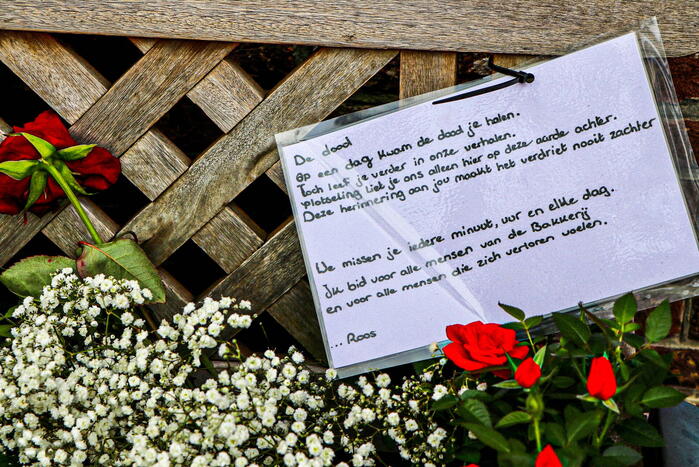 De dood
Op een dag kwam de dood je halen.
Toch leef je verder in onze verhalen.
plotseling liet je ons alleen hier op deze aarde achter.
Deze herinnering aan jou maakt het verdriet nooit zachter
We missen je iedere minuut, uur en elke dag.
Ik bid voor alle mensen van de Bakkerij
en voor alle mensen die zich verloren voelen.
... Roos